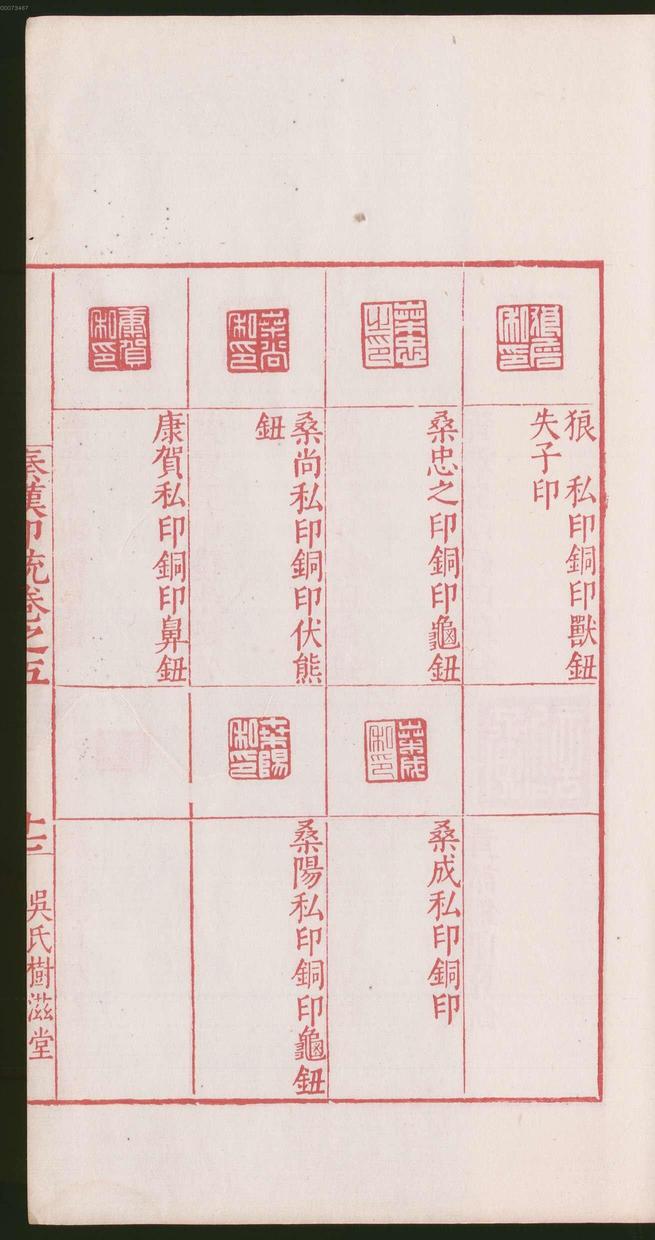 狼　私印銅印獸鈕
失子印
桑忠之印銅印龜鈕
桑尚私印銅印伏熊
鈕
康賀私印銅印鼻鈕
桑成私印銅印
桑陽私印銅印龜鈕
秦漢印統卷之五
十二
吳氏樹滋堂
00073467